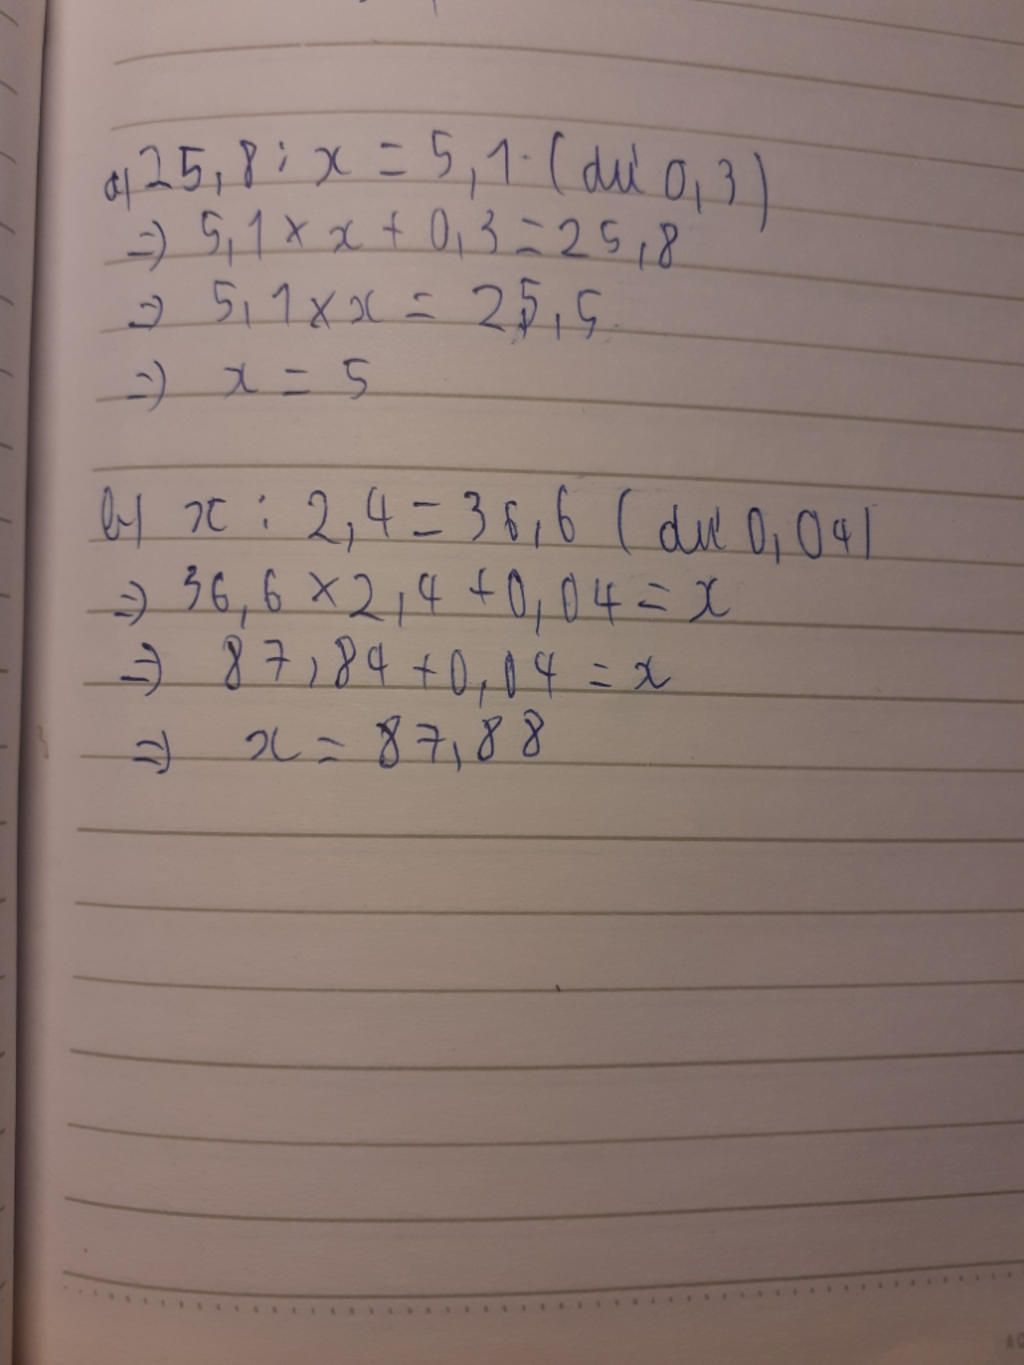 a) 25,8 : x = 5,1 (dư 0,3)
=) 5,1 × x + 0,3 = 25,8
=) 5,1 × x = 25,5
=) x = 5
b) x : 2,4 = 36,6 (dư 0,04)
=) 36,6 × 2,4 + 0,04 = x
=) 87,84 + 0,04 = x
=) x = 87,88